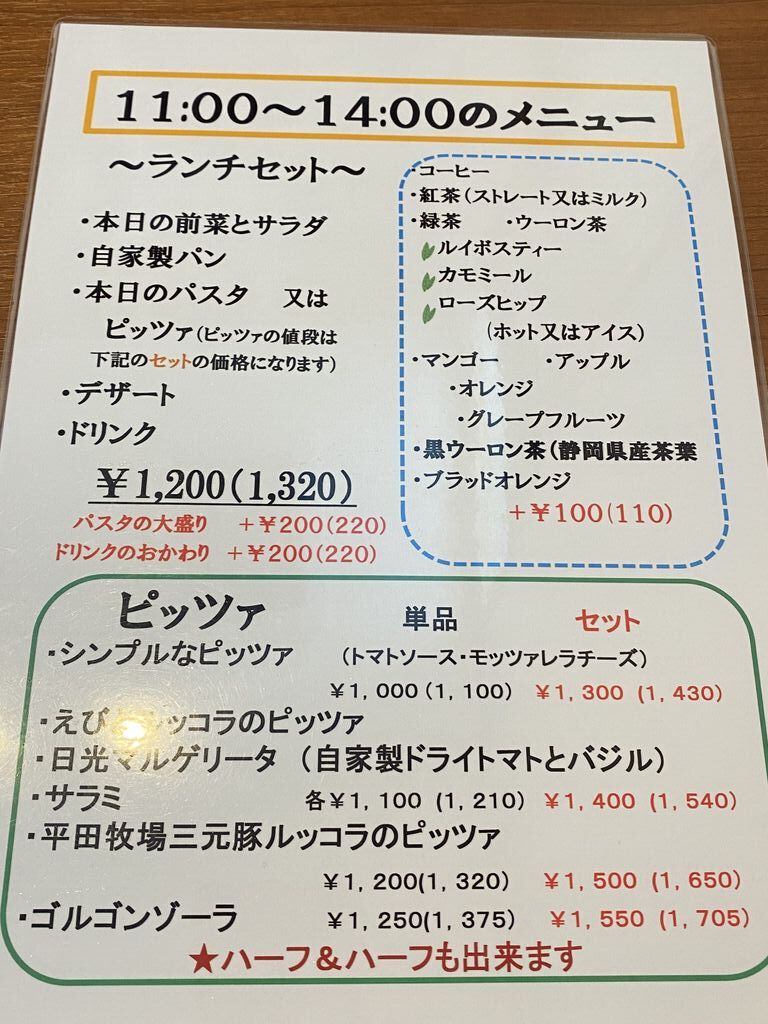 11:00～14:00のメニュー
～ランチセット～
・本日の前菜とサラダ
・自家製パン
・本日のパスタ 又は
ピッツァ(ピッツァの値段は
下記のセットの価格になります)
・デザート
・ドリンク
￥1,200(1,320)
パスタの大盛り ＋￥200(220)
ドリンクのおかわり ＋￥200(220)
・コーヒー
・紅茶(ストレート又はミルク)
・緑茶 ・ウーロン茶
ルイボスティー
カモミール
ローズヒップ
(ホット又はアイス)
・マンゴー ・アップル
・オレンジ
・グレープフルーツ
・黒ウーロン茶(静岡県産茶葉
・ブラッドオレンジ
＋￥100(110)
ピッツァ 単品 セット
・シンプルなピッツァ (トマトソース・モッツァレラチーズ)
￥1,000(1,100) ￥1,300 (1,430)
・えび ルッコラのピッツァ
・日光マルゲリータ (自家製ドライトマトとバジル)
・サラミ 各￥1,100 (1,210) ￥1,400 (1,540)
・平田牧場三元豚ルッコラのピッツァ
￥1,200(1,320) ￥1,500 (1,650)
・ゴルゴンゾーラ ￥1,250(1,375) ￥1,550 (1,705)
★ハーフ＆ハーフも出来ます